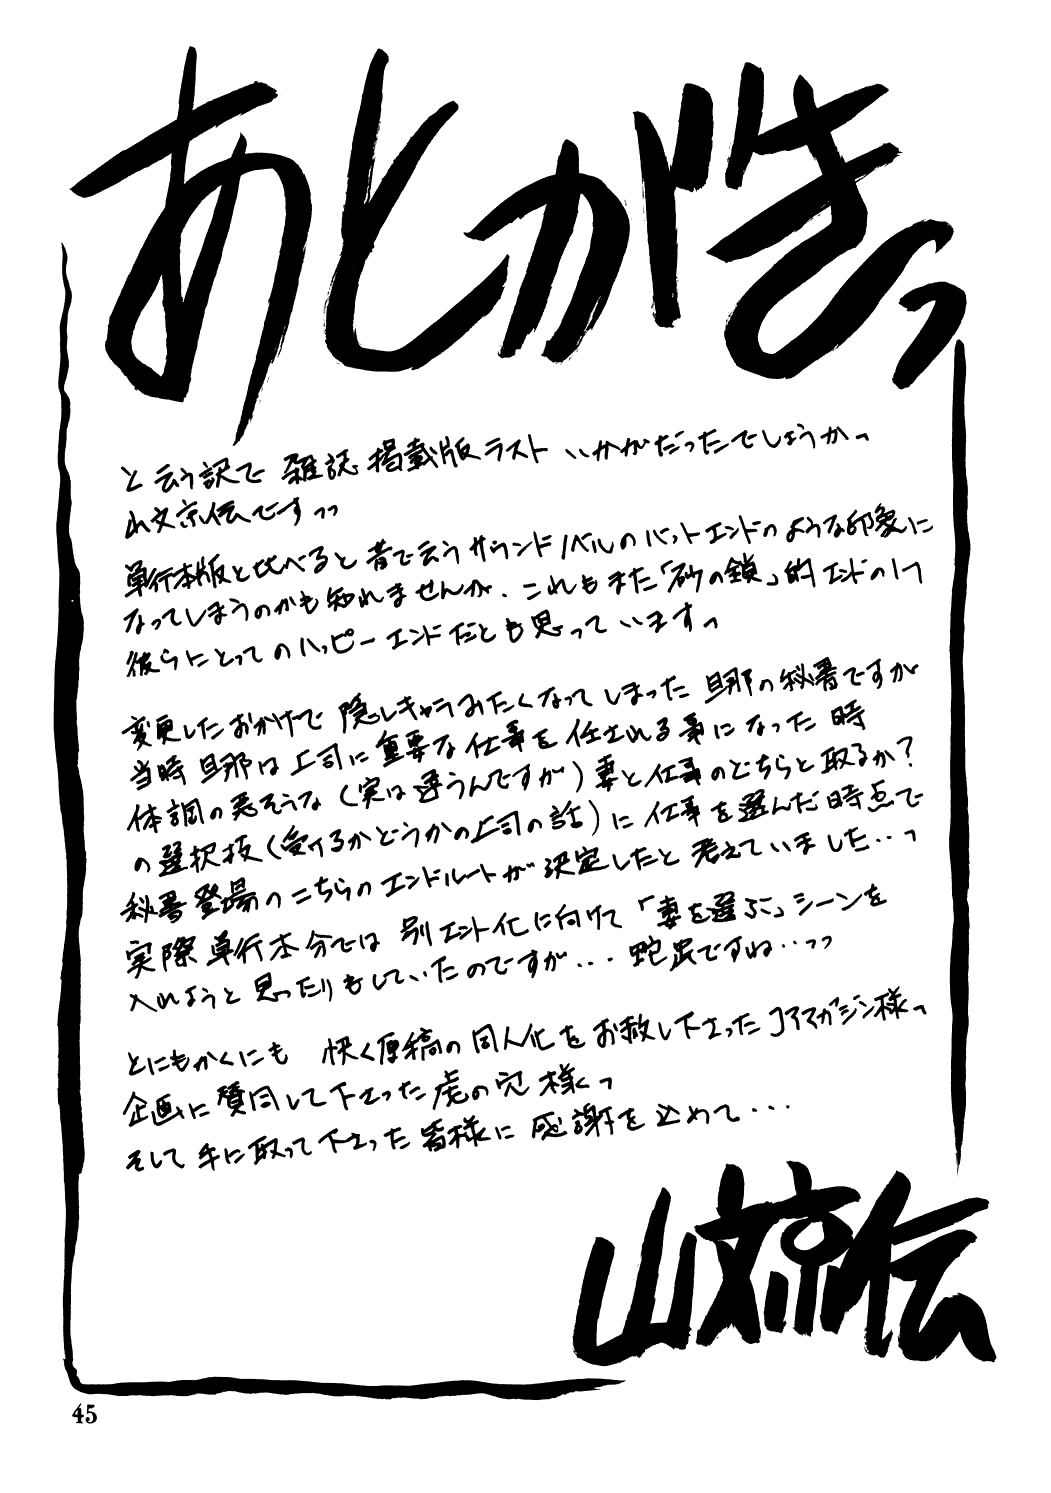 あとがきっ
と云う訳で 雑誌掲載版ラスト いかがだったでしょうかっ
山文京伝ですっっ
単行本版と比べると昔で云うサウンドノベルのバットエンドのような印象に
なってしまうのかも知れませんが、これもまた「砂の鎖」的エンドの1つ
彼らにとってのハッピーエンドだとも思っていますっ
変更したおかげで 隠しキャラみたくなってしまった 旦那の秘書ですが
当時 旦那は上司に重要な仕事を任される事になった時
体調の悪そうな(実は違うんですが)妻と仕事のどちらと取るか?
の選択枝(受けるかどうかの上司の話)に仕事を選んだ時点で
秘書登場のこちらのエンドルートが決定したと考えていました‥っ
実際単行本分では 別エンド化に向けて「妻を選ぶ」シーンを
入れようと思ったりもしていたのですが... 蛇足ですね‥っっ
とにもかくにも 快く原稿の同人化をお赦し下さったコアマガジン様っ
企画に賛同して下さった虎の穴様っ
そして手に取って下さった皆様に 感謝を込めて...
山文京伝
45